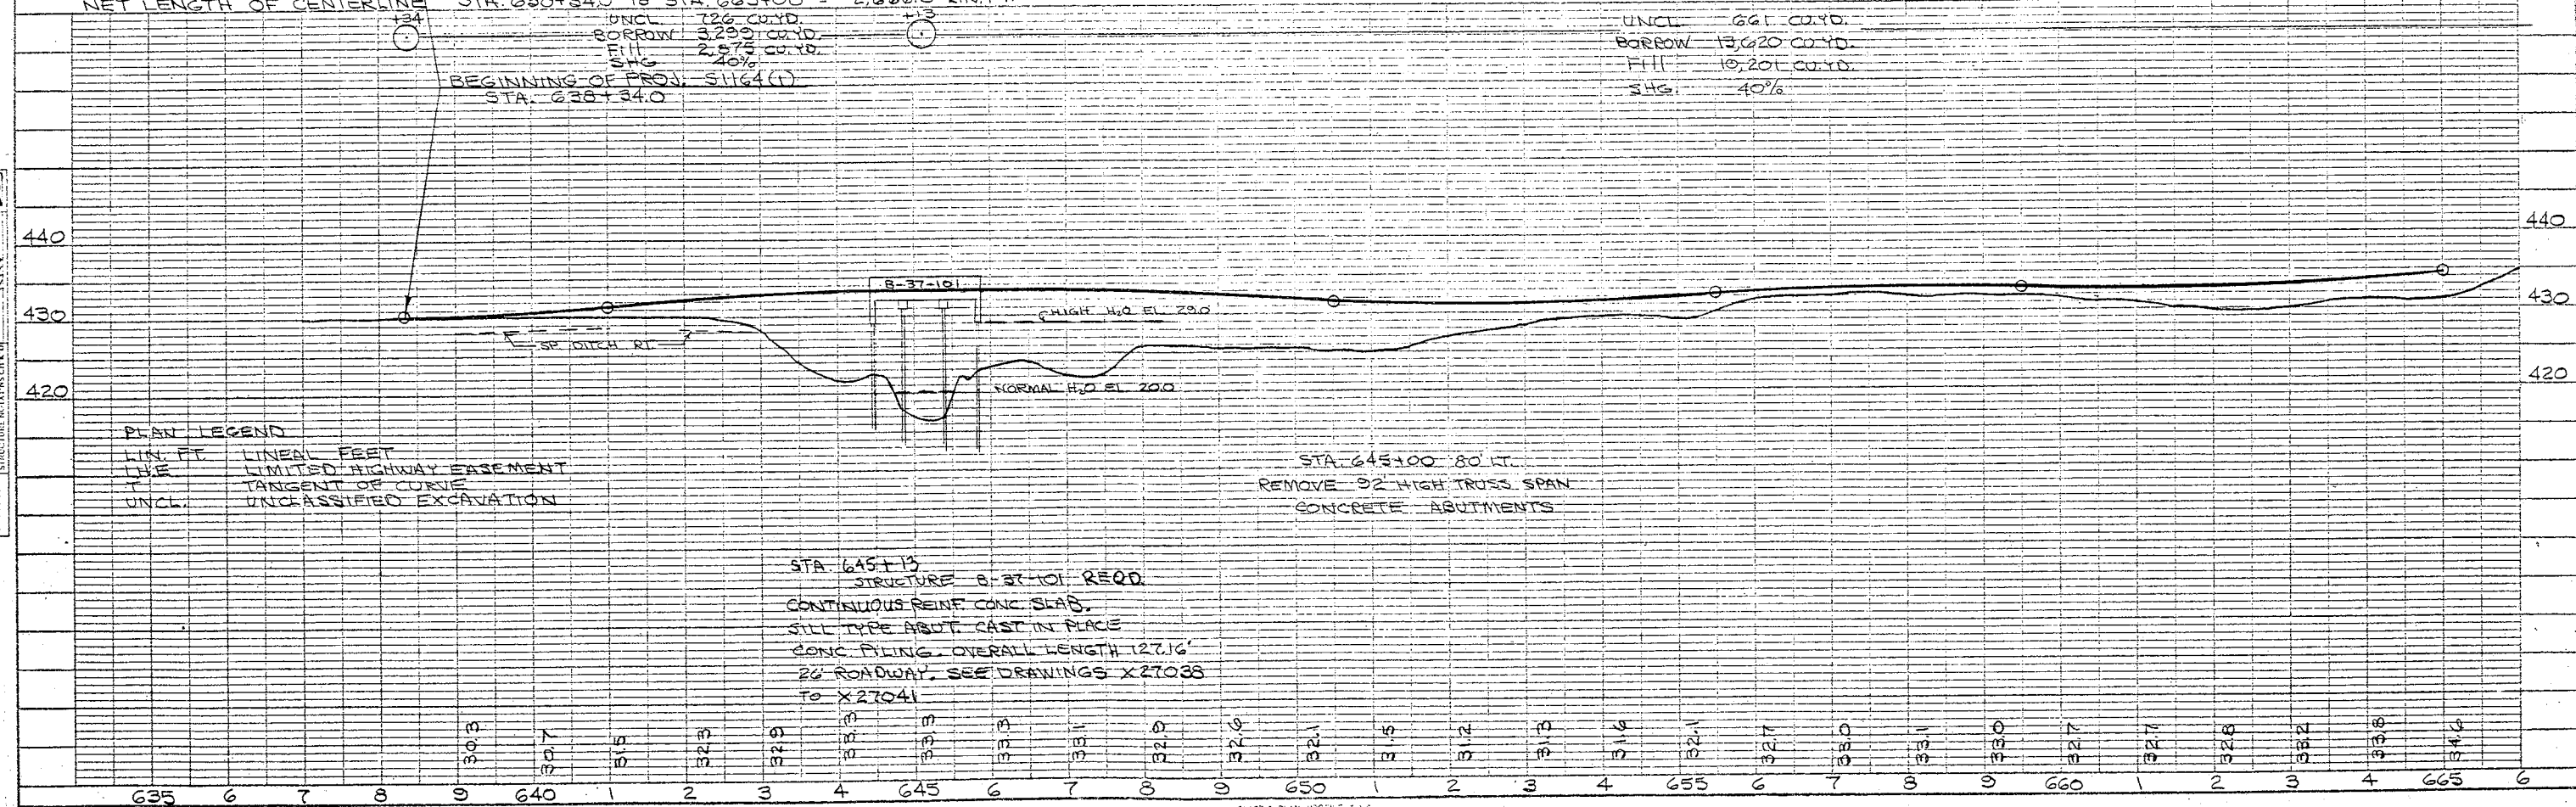 NET LENGTH OF CENTERLINE
+34
UNCL. 726 CU.YD.
BORROW 3,299 CU.YD.
Fill 2,875 CU.YD.
SHG 40%
+13
BEGINNING OF PROJ. S1164(1)
STA. 638+34.0
UNCL. 661 CU.YD.
BORROW 13,620 CU.YD.
Fill 10,201 CU.YD.
SHG 40%
440
440
B-37-101
430
HIGH H2O EL. 29.0
430
SP. DITCH RT.
420
NORMAL H2O EL. 20.0
420
PLAN LEGEND
LIN. FT. LINEAL FEET
L.H.E. LIMITED HIGHWAY EASEMENT
T TANGENT OF CURVE
UNCL. UNCLASSIFIED EXCAVATION
STA. 645+00 80' LT.
REMOVE 92' HIGH TRUSS SPAN
CONCRETE ABUTMENTS
STA. 645+13
STRUCTURE B-37-101 REQD.
CONTINUOUS REINF. CONC. SLAB.
SILL TYPE ABUT. CAST IN PLACE
CONC. PILING. OVERALL LENGTH 127.16'
26' ROADWAY. SEE DRAWINGS X27038
TO X27041
30.3 30.7 31.5 32.3 32.9 33.3 33.3 33.3 33.1 32.9 32.6 32.1 31.5 31.2 31.3 31.6 32.1 32.7 33.0 33.1 33.0 32.7 32.7 32.8 33.2 33.8 34.6
635 6 7 8 9 640 1 2 3 4 645 6 7 8 9 650 1 2 3 4 655 6 7 8 9 660 1 2 3 4 665 6